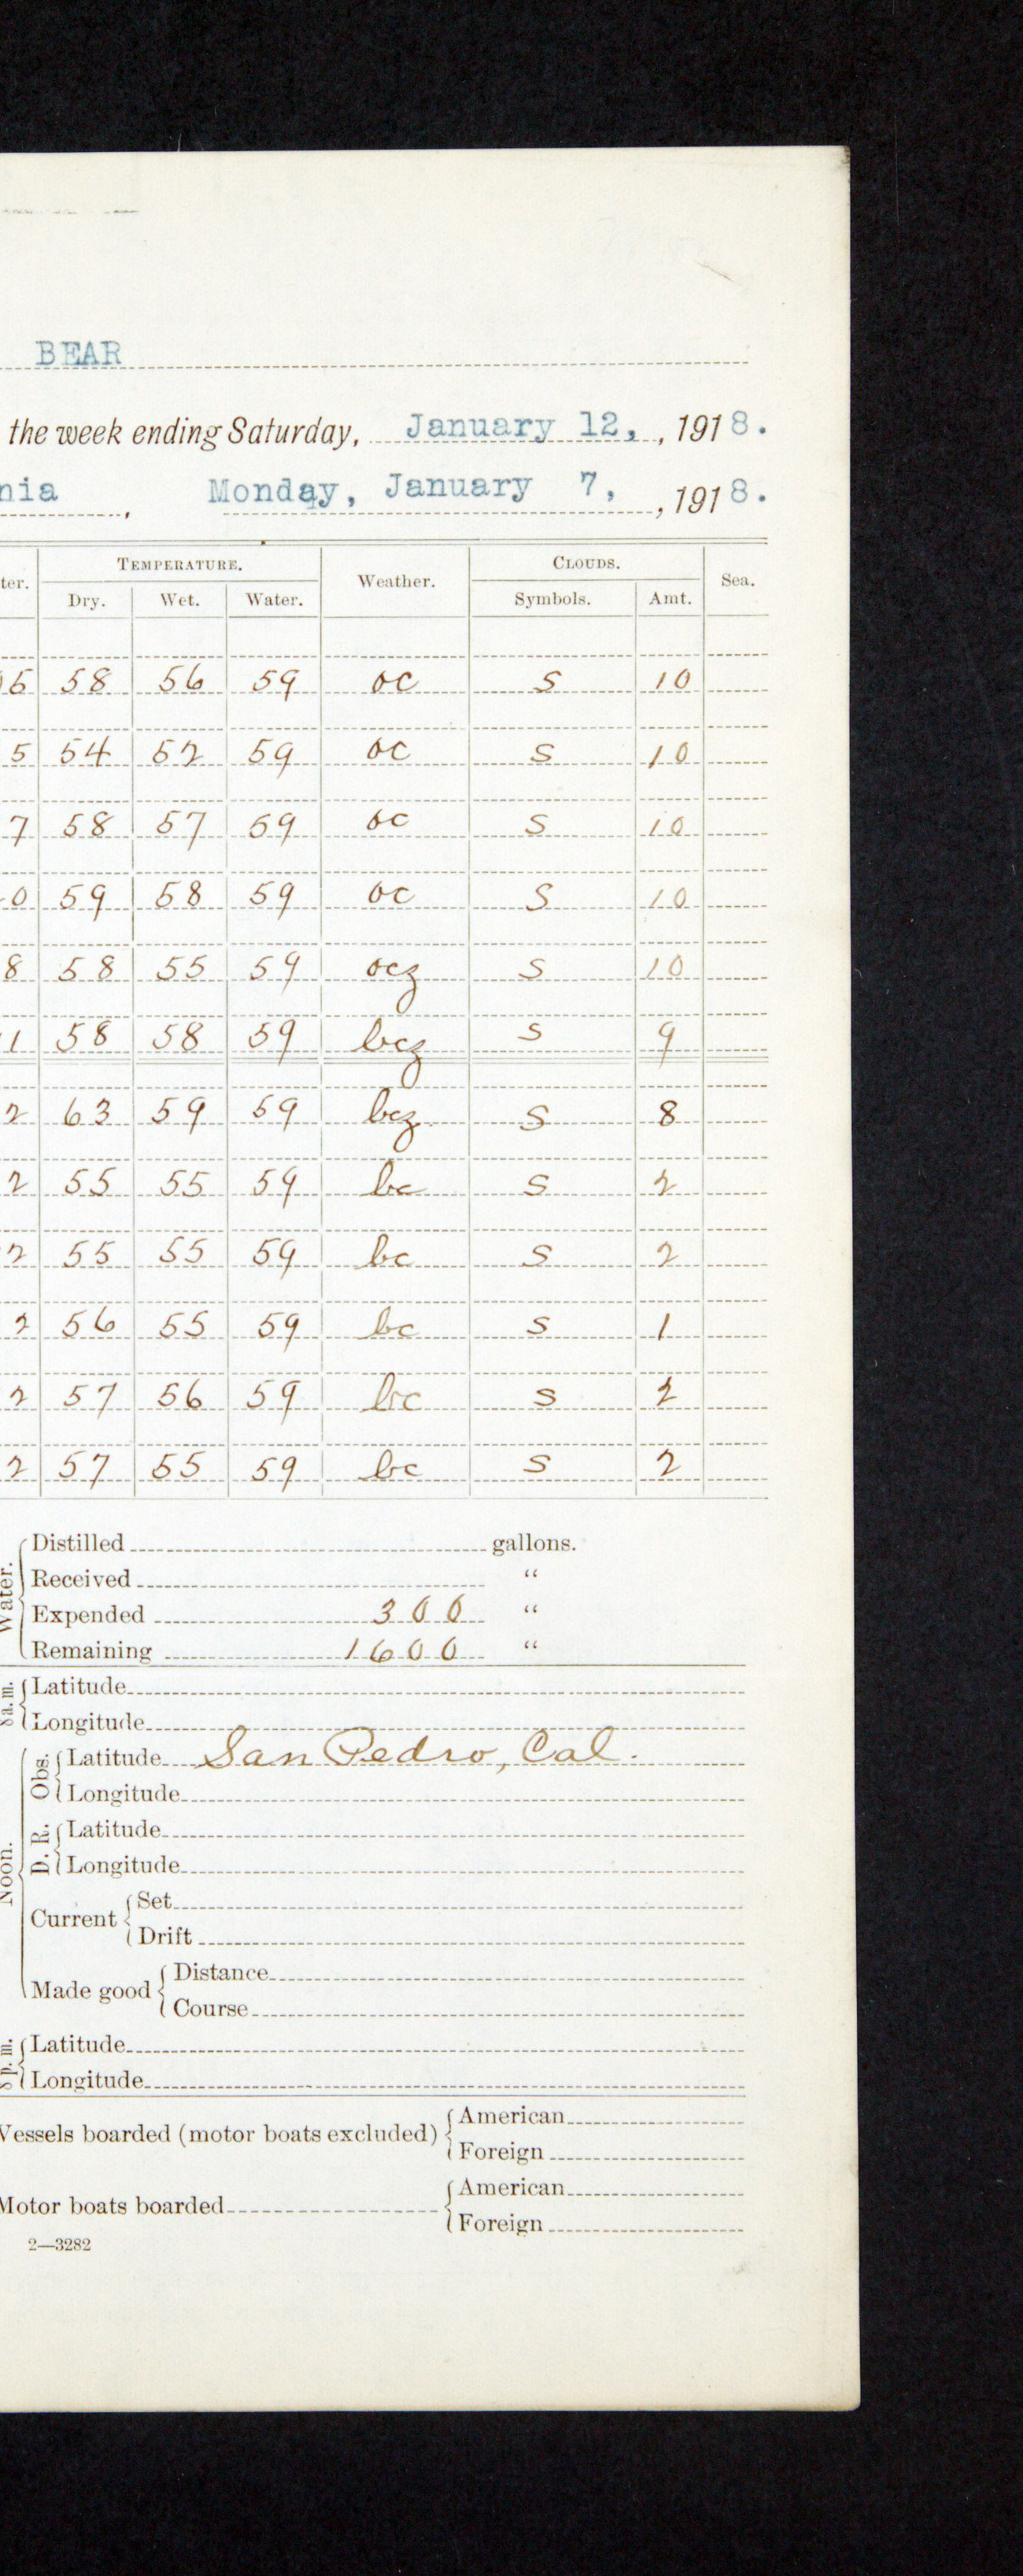 BEAR
the week ending Saturday, January 12, , 1918.
nia , Monday, January 7, , 1918.
ter. TEMPERATURE. Weather. CLOUDS. Sea.
Dry. Wet. Water. Symbols. Amt.
5 58 56 59 oc S 10
5 54 52 59 oc S 10
7 58 57 59 oc S 10
0 59 58 59 oc S 10
8 58 55 59 ocz S 10
1 58 58 59 bcz S 9
2 63 59 59 bcz S 8
2 55 55 59 bc S 2
2 55 55 59 bc S 2
2 56 55 59 bc S 1
2 57 56 59 bc S 2
2 57 55 59 bc S 2
Water.
Distilled gallons.
Received "
Expended 300 "
Remaining 1600 "
8 a.m. Latitude
Longitude
Noon.
Obs. Latitude San Pedro, Cal.
Longitude
D. R. Latitude
Longitude
Current Set
Drift
Made good Distance
Course
8 p.m. Latitude
Longitude
Vessels boarded (motor boats excluded) American
Foreign
Motor boats boarded American
Foreign
2—3282